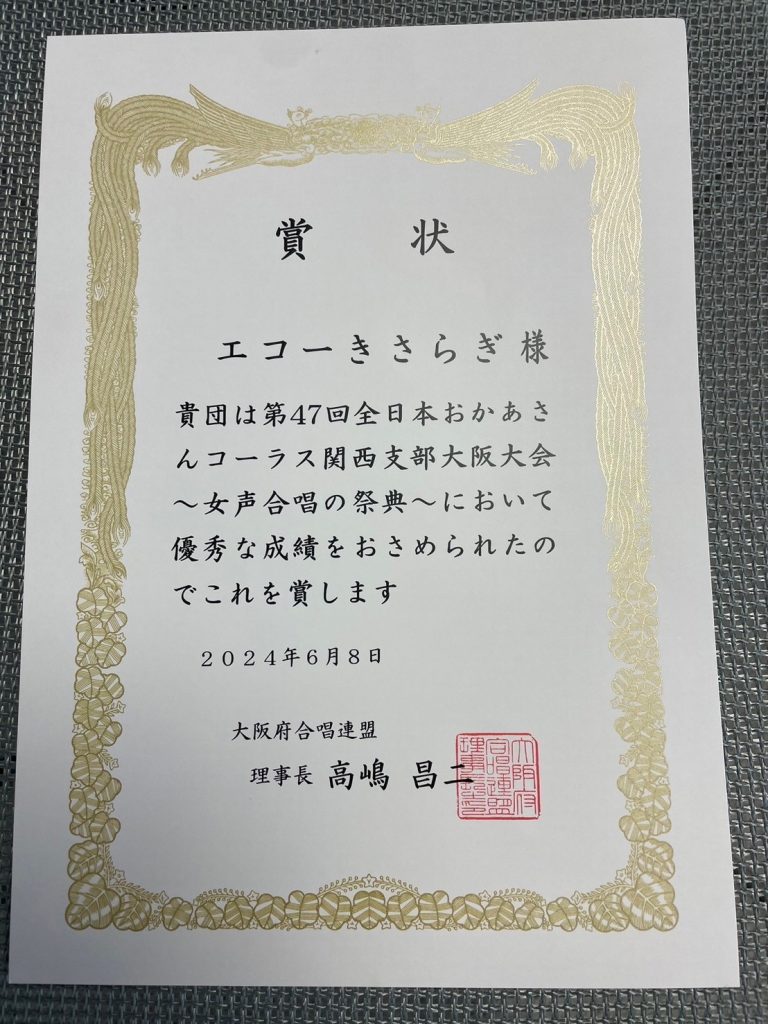 賞状
エコーきさらぎ様
貴団は第47回全日本おかあさ
んコーラス関西支部大阪大会
～女声合唱の祭典～において
優秀な成績をおさめられたの
でこれを賞します
２０２４年６月８日
大阪府合唱連盟
理事長 高嶋 昌二
大阪府
合唱連盟